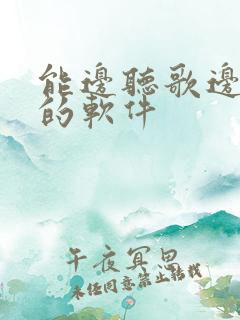 能邊聽歌邊
的軟件
午夜冥思
未经同意禁止转载